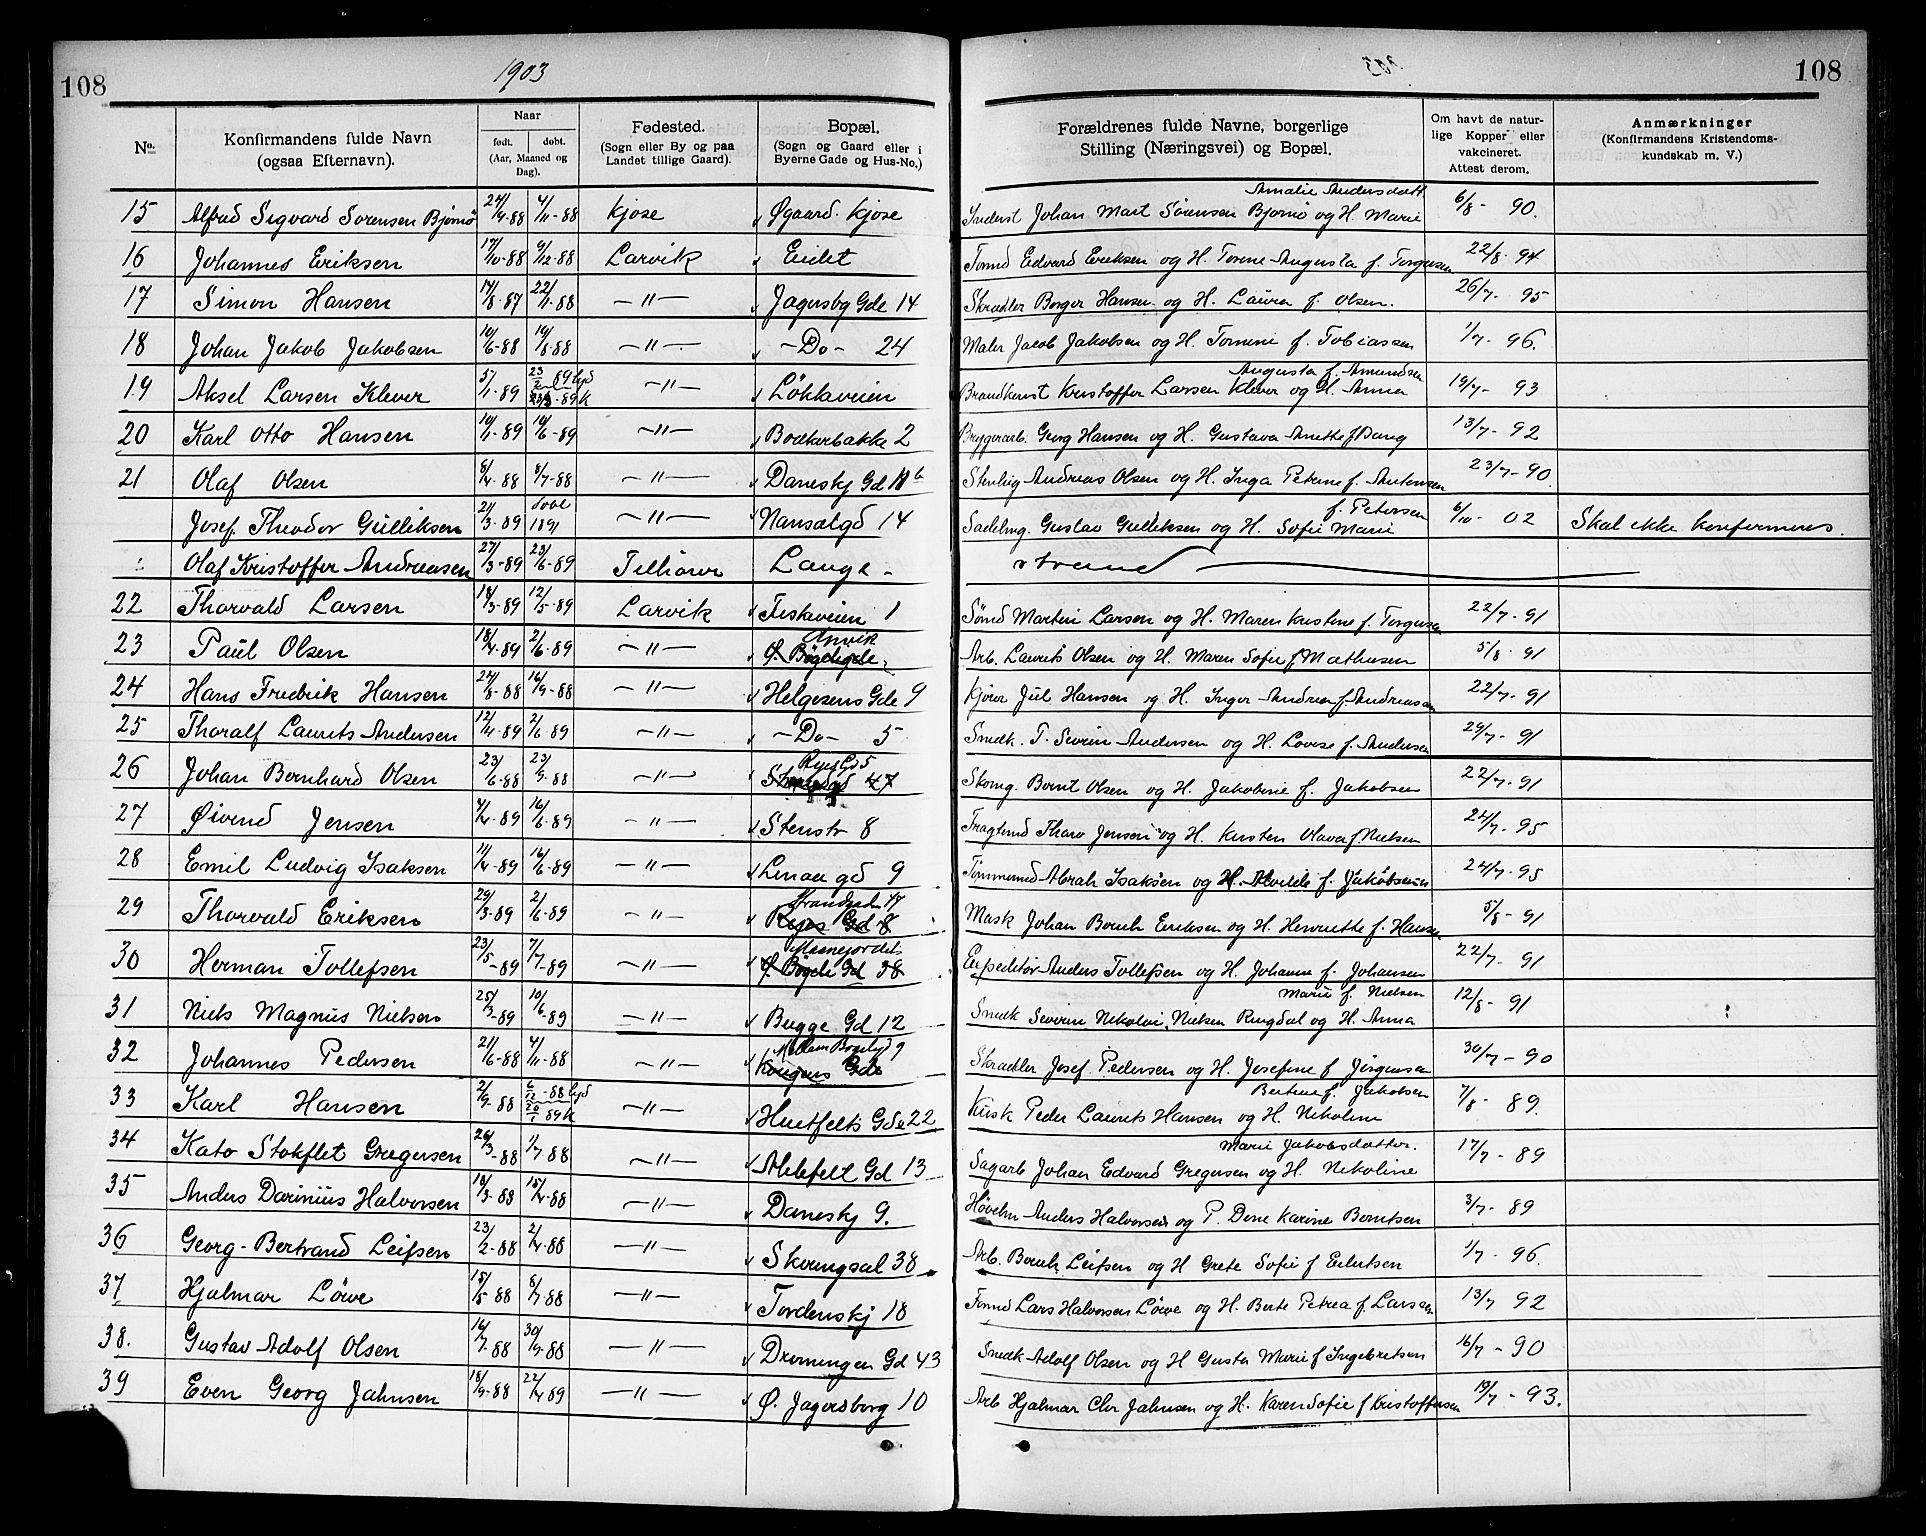 108
1903
No.
Konfirmandens fulde Navn
(ogsaa Efternavn).
Naar
født.
døbt.
(Aar, Maaned og
Dag).
Fødested.
(Sogn eller By og paa
Landet tillige Gaard).
Bopæl.
(Sogn og Gaard eller i
Byerne Gade og Hus-No.)
15 Alfred Sigvard Sørensen Bjørnø 24/9-88 4/11-88 Kjose Øgaard. Kjose
16 Johannes Eriksen 17/10-88 9/12-88 Larvik Eidet
17 Simon Hansen 17/8-87 22/1-88 -"- Jagersbg Gde 14
18 Johan Jakob Jakobsen 10/6-88 19/8-88 -"- -Do- 24
19 Aksel Larsen Klever 5/1-89 -"- Løkkaveien
20 Karl Otto Hansen 10/1-89 10/6-89 -"- Bødkerbakke 2
21 Olaf Olsen 8/4-88 8/7-88 -"- Daneskj Gd 11 b
Josef Theodor Gulliksen 21/3-89 1891 -"- Nansetgd 14
Olaf Kristoffer Andreasen 27/3-89 23/6-89 Tjølling Lange-
22 Thorvald Larsen 18/3-89 12/5-89 Larvik Teskaveien 1
23 Paul Olsen 18/4-89 2/6-89 -"- Anvik
24 Hans Fredrik Hansen 24/8-88 16/9-88 -"- Helgesens Gde 9
25 Thoralf Laurits Andersen 12/4-89 2/6-89 -"- -Do- 5
26 Johan Bernhard Olsen 23/6-88 23/9-88 -"- Ryes Gd 5
27 Øivind Jensen 4/4-89 16/6-89 -"- Stenstr 8
28 Emil Ludvig Isaksen 11/4-89 16/6-89 -"- Linaa gd 9
29 Thorvald Eriksen 29/3-89 2/6-89 -"- Strandgaden 47
Ryes Gd 8
30 Herman Tollefsen 23/5-89 7/7-89 -"- Mannejordet
Ø. Bøgeli Gd 38
31 Niels Magnus Nielsen 25/3-89 10/6-89 -"- Bugge Gd 12
32 Johannes Pedersen 21/6-88 4/11-88 -"-
Kongens Gde
33 Karl Hansen 2/9-88 -"- Huitfelts Gde 22
34 Kato Stokflet Gregersen 26/3-88 1/7 88 -"- Ahlefelt Gd 13
35 Anders Darinius Halvorsen 18/3-88 15/4-88 -"- Daneskj 9.
36 Georg-Bertrand Leifsen 23/2-88 2/4-88 -"- Skiringsal 38
37 Hjalmar Löwe 15/5-88 8/7-88 -"- Tordenskj 18
38. Gustav Adolf Olsen 16/7-88 30/9-88 -"- Dronningen Gd 43
39 Even Georg Jahnsen 18/9-88 22/4-89 -"- Ø. Jagersborg 10
108
Forældrenes fulde Navne, borgerlige
Stilling (Næringsvei) og Bopæl.
Om havt de natur-
lige Kopper eller
vakcineret.
Attest derom.
Anmærkninger
(Konfirmandens Kristendoms-
kundskab m. V.)
Amalie Andersdatt.
Inderst Johan Mart Sørensen Bjørnø og H. Marie 6/8-90.
Tømd Edvard Eriksen og H. Torine Augusta f. Torgersen 22/8-94
Skrædder Borger Hansen og H. Laura f. Olsen. 26/7-95
Maler Jacob Jakobsen og H. Tomine f. Tobiassen 1/7-96.
Augusta f. Amundsen
Brandkonst Kristoffer Larsen Klever og H. Anna 19/7-93
Bryggerarb. Georg Hansen og H. Gustava Anette f Bang 13/7-92
Stenhug Andreas Olsen og H. Inga Petrine f. Antonsen 23/7-90.
f. Petersen
Sadelmg. Gustav Gulliksen og H. Sofie Marie 6/10-02 Skal ikke konfirmeres.
strand
Sømd Martin Larsen og H. Maren Kristine f. Torgersen 22/7-91
Arb. Laurits Olsen og H. Maren Sofie f Mathisen 5/8-91
Kjører Jul Hansen og H. Inger Andrea f. Andreasen 22/7-91
Smedk. T. Severin Andersen og H. Lovise f. Andersen 29/7-91
Skomg. Bernt Olsen og H. Jakobine f. Jakobsen 22/7-91
Fragtemd Tharv Jensen og H. Kirsten Olava f. Nielsen 24/7-95
Tømmermd Abrah Isaksen og H. Alvilde f. Jakobsen 24/7-95
Mask Johan Bernh Eriksen og H. Henriette f. Hansen 5/8-91
Expeditör Anders Tollefsen og H. Johanne f. Johansen 22/7-91
Marie f. Nielsen
Smedk Severin Nikolai Nielsen Ringdal og H. Anna 12/8-91
Skrædder Josef Pedersen og H. Josefine f Jørgensen 30/7-90
Bertine f. Jakobsen
Kusk Peder Laurits Hansen og H. Nikoline 7/8-89.
Marie Jakobsdatter.
Sagarb Johan Edvard Gregersen og H. Nikoline 17/7-89
Høvelm Anders Halvorsen og P. Dene Karine Berntsen 3/7-89
Arb. Bernh Leifsen og H Grete Sofie f Eilertsen 1/7-96.
Tømd Lars Halvorsen Löwe og H. Berte Petrea f. Larsen 13/7 92
Smedk Adolf Olsen og H Gusta Marie f Ingebretsen 16/7-90
Arb Hjalmar Chr Jahnsen og H. Karen Sofie f Kristoffersen 19/7-93.